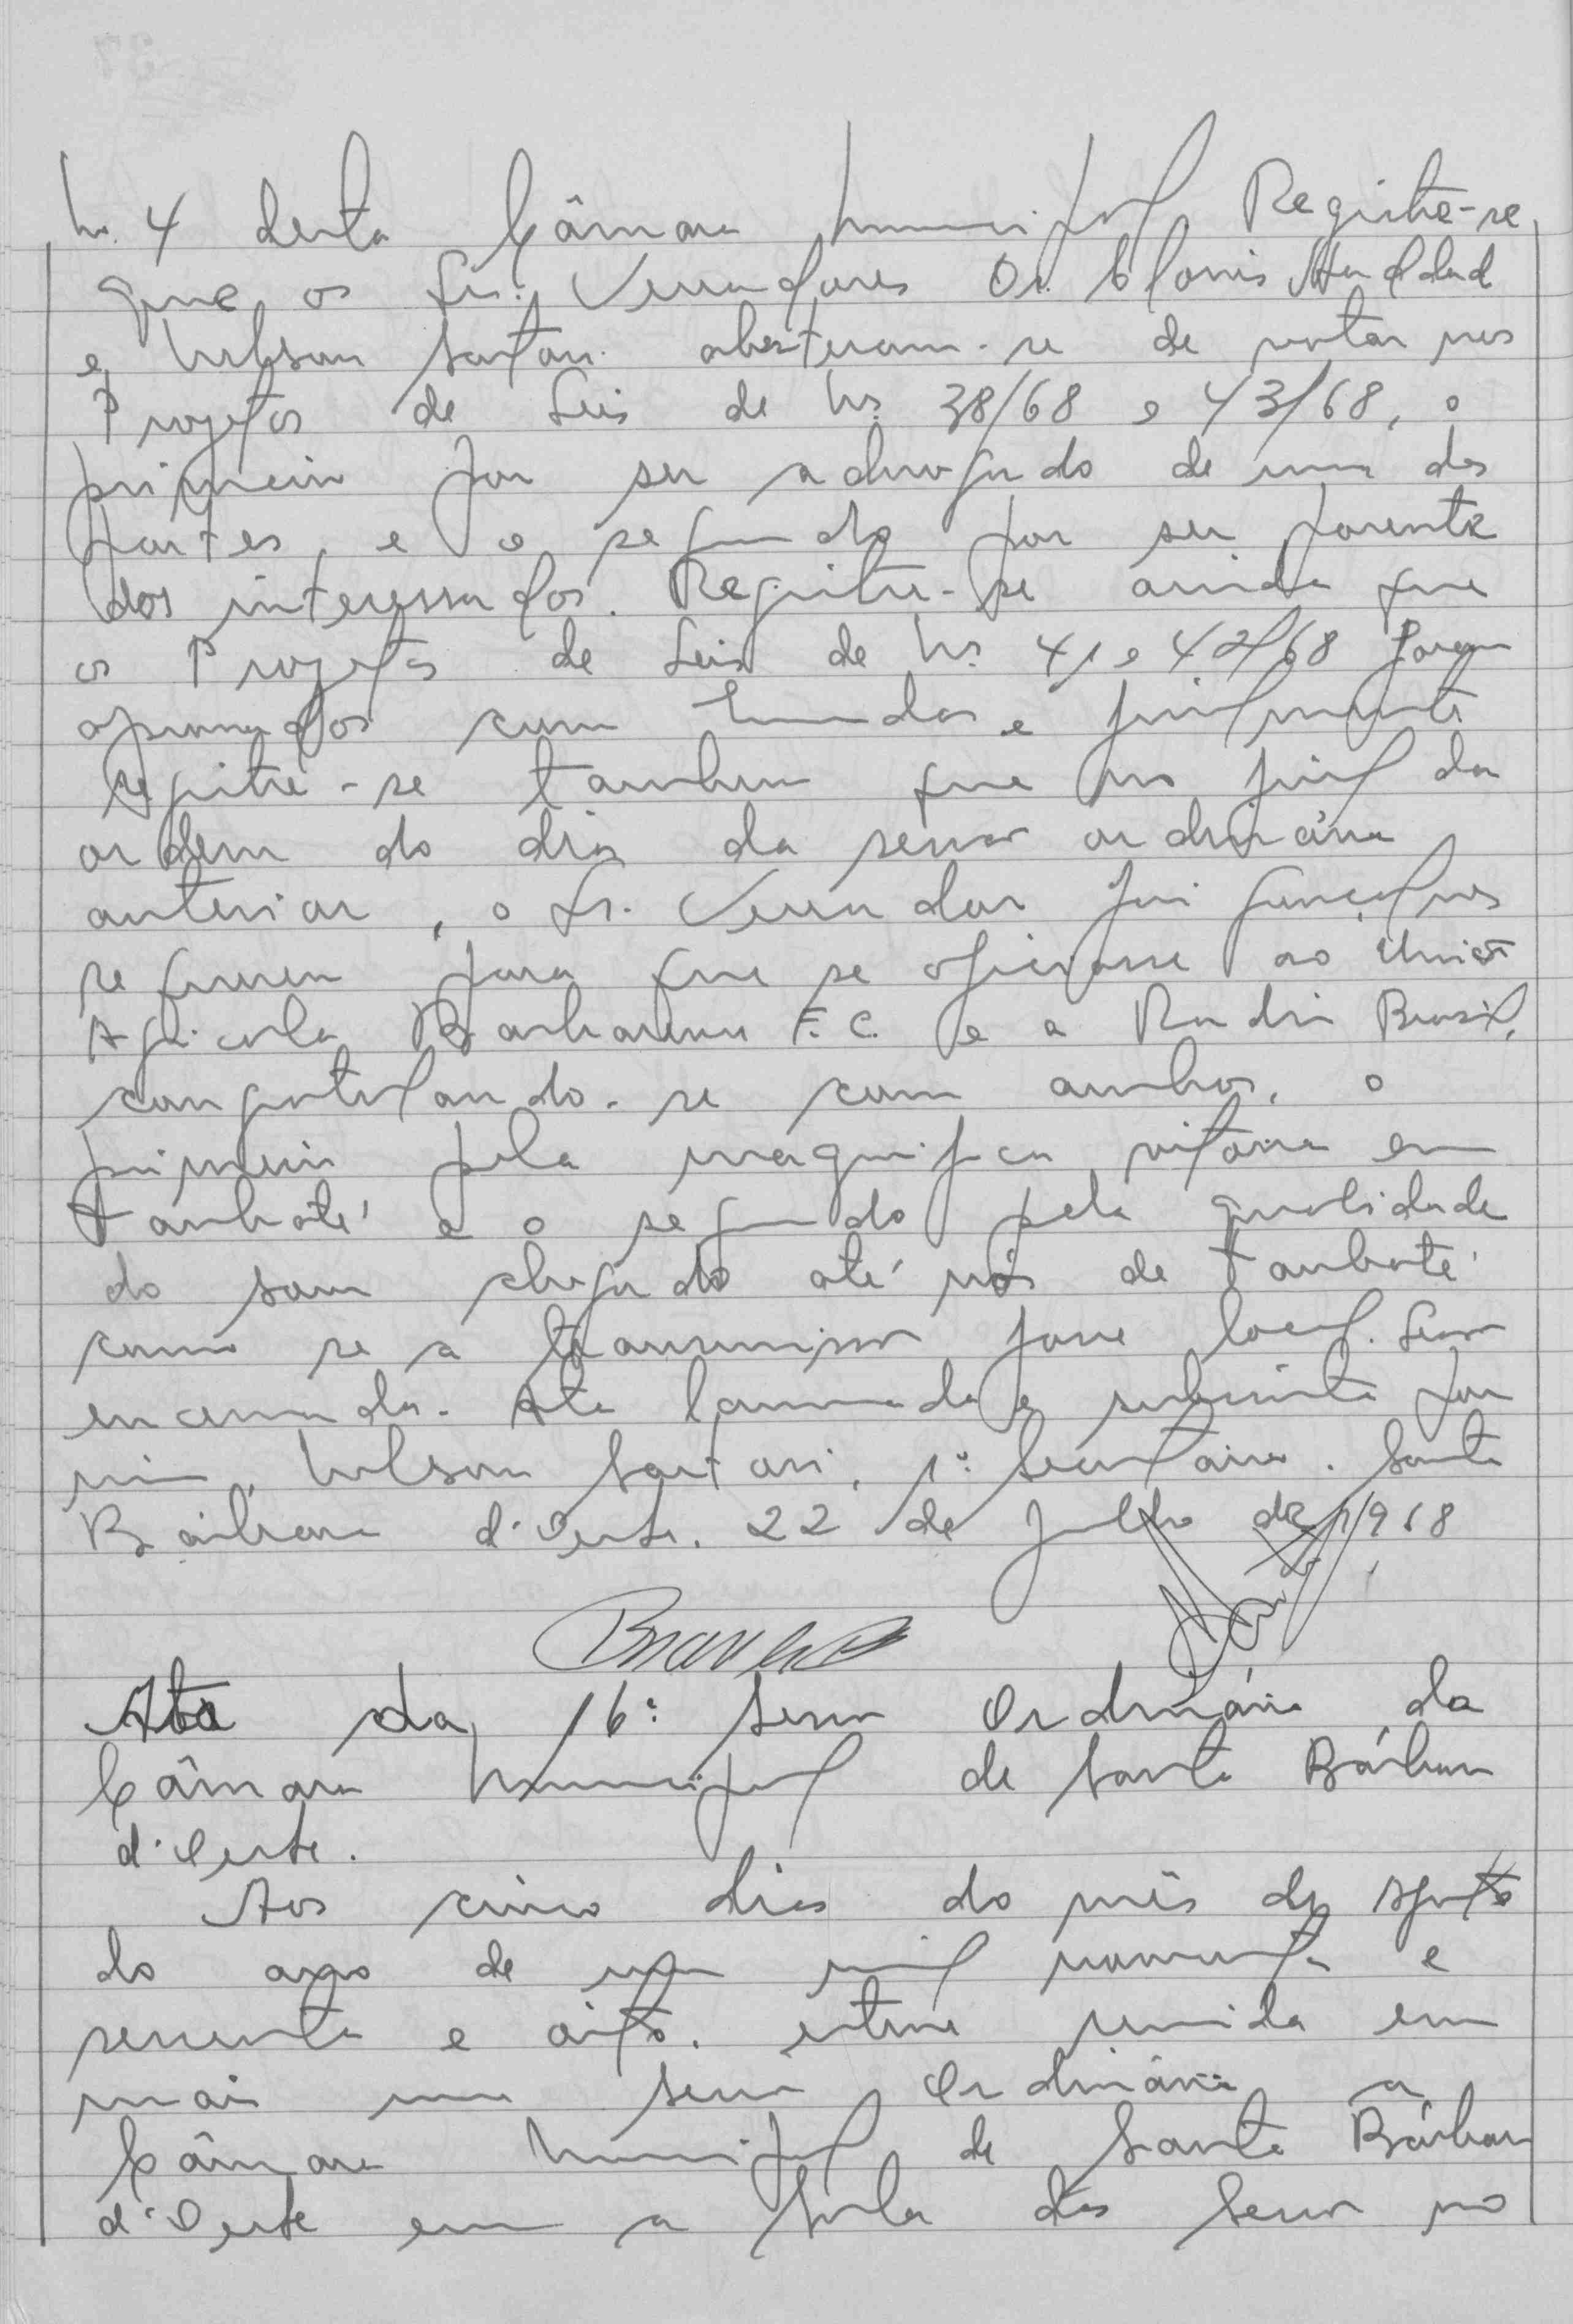 N. 4 desta Câmara Municipal, Registre-se
que os Srs. Vereadores Dr.
e, Nelson Sartori absteram-se de votar nos
Projetos de Leis de Ns. 38/68 e 43/68, o
primeiro por ser advogado de uma das
partes, e o segundo por ser parente
dos interessados. Registre-se ainda que
os Projetos de Leis de Ns. 41 e 42/68 foram
aprovados com Emendas e finalmente
registre-se tambem que no final da
ordem do dia da sessão ordinária
anterior, o Sr. Vereador Gonçalves
requereu para que se oficiasse ao União
Agricola Barbarense F.C. e a Radio Brasil,
congratulando-se com ambos, o
primeiro pela magnifica vitória em
Taubaté e o segundo pela qualidade
do som chegado até nós de Taubaté
como se a transmissão fosse local. Sessão
encerrada. Ata lavrada e subscrita por
mim, Nelson Sartori, 1º Secretário. Santa
Bárbara d'Oeste. 22 de Julho de 1968
Ata da 16ª Sessão Ordinária da
Câmara Municipal de Santa Bárbara
d'Oeste.
Aos cinco dias do mês de Agosto
do ano de um mil novecentos e
sessenta e oito. esteve reunida em
mais uma Sessão Ordinária a
Câmara Municipal de Santa Bárbara
d'Oeste em a Sala das Sessões no